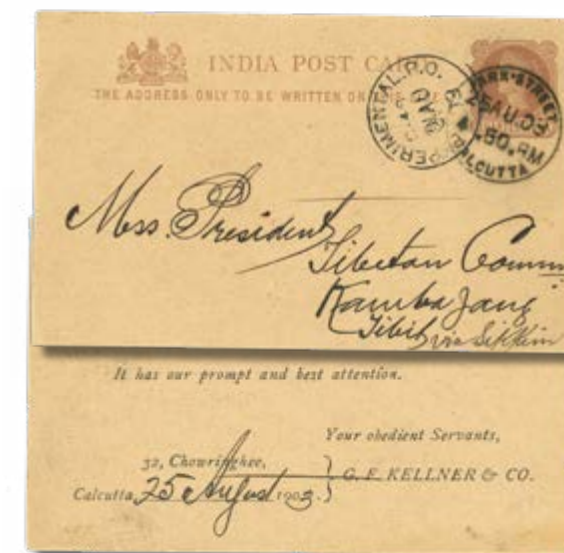 INDIA POST CA
THE ADDRESS ONLY TO BE WRITTEN ON
EXPERIMENTAL P.O.
PARK-STREET
25AU.03
.50.AM
CALCUTTA
Mess. President
Tibetan Comm
Kamba Jang
Tibet via Sikkim
It has our prompt and best attention.
Your obedient Servants,
32, Chowringhee,
G. F. KELLNER & CO.
Calcutta, 25 August 1903.